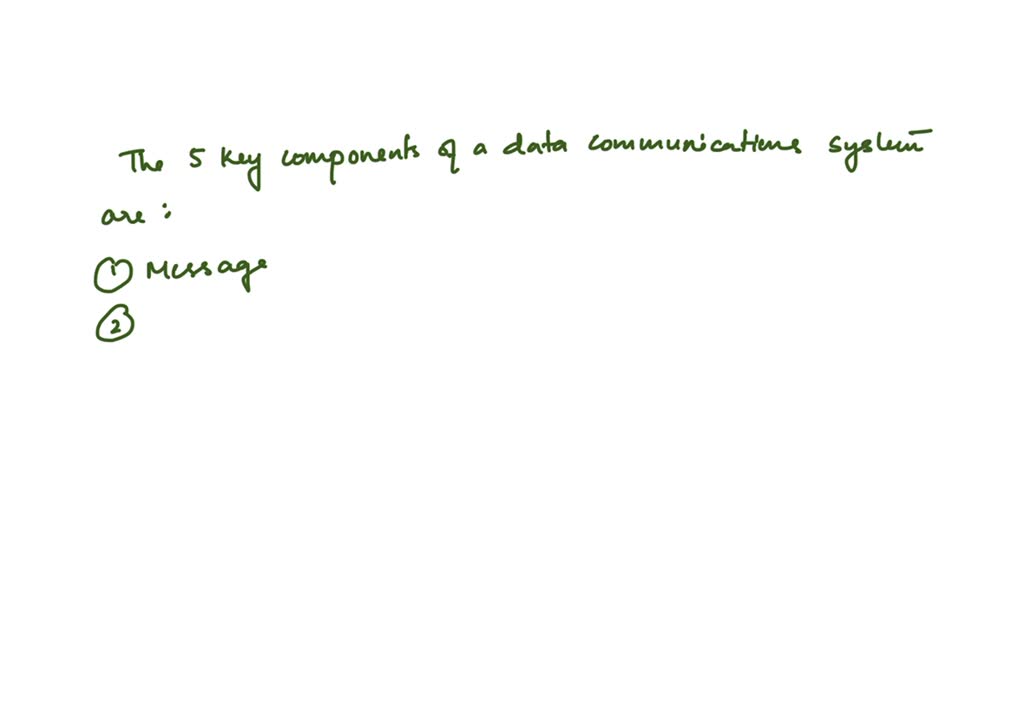 The 5 key components of a data communications system
are :
① Message
②